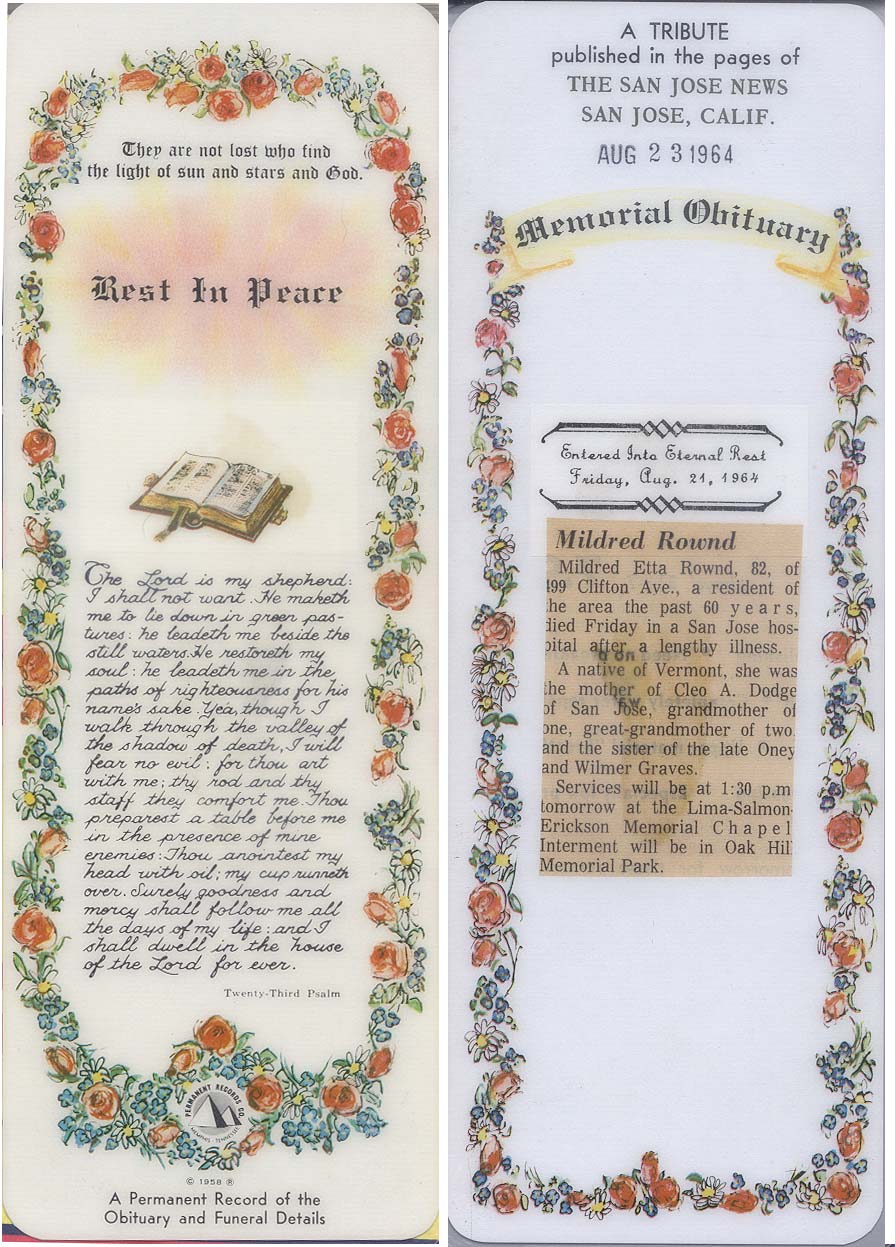 They are not lost who find
the light of sun and stars and God.
Rest In Peace
The Lord is my shepherd:
I shall not want. He maketh
me to lie down in green pas-
tures: he leadeth me beside the
still waters. He restoreth my
soul: he leadeth me in the
paths of righteousness for his
name's sake. Yea, though I
walk through the valley of
the shadow of death, I will
fear no evil: for thou art
with me; thy rod and thy
staff they comfort me. Thou
preparest a table before me
in the presence of mine
enemies: Thou anointest my
head with oil; my cup runneth
over. Surely goodness and
mercy shall follow me all
the days of my life: and I
shall dwell in the house
of the Lord for ever.
Twenty-Third Psalm
PERMANENT RECORDS CO.
MEMPHIS - TENNESSEE
© 1958 ®
A Permanent Record of the
Obituary and Funeral Details
A TRIBUTE
published in the pages of
THE SAN JOSE NEWS
SAN JOSE, CALIF.
AUG 23 1964
Memorial Obituary
Entered Into Eternal Rest
Friday, Aug. 21, 1964
Mildred Rownd
Mildred Etta Rownd, 82, of
499 Clifton Ave., a resident of
the area the past 60 years,
died Friday in a San Jose hos-
pital after a lengthy illness.
A native of Vermont, she was
the mother of Cleo A. Dodge
of San Jose, grandmother of
one, great-grandmother of two
and the sister of the late Oney
and Wilmer Graves.
Services will be at 1:30 p.m
tomorrow at the Lima-Salmon-
Erickson Memorial Chapel
Interment will be in Oak Hil
Memorial Park.